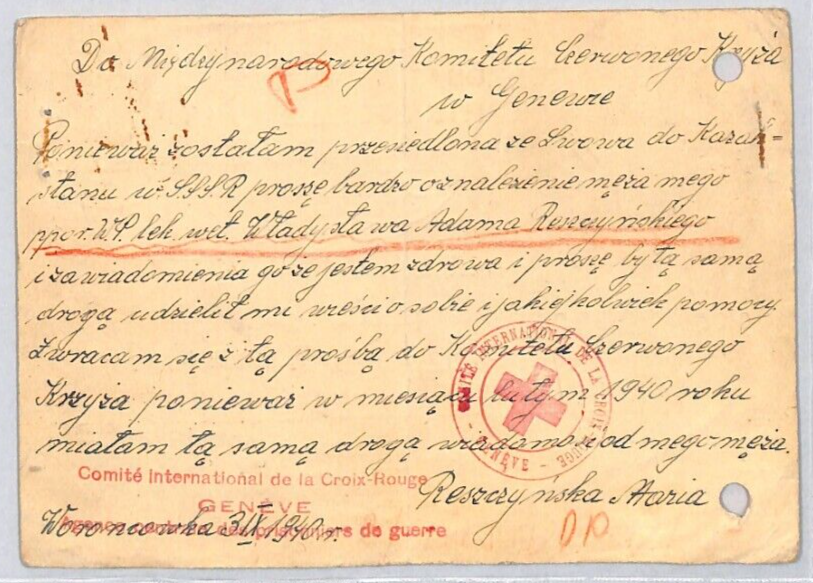 Do Międzynarodowego Komitetu Czerwonego Krzyża
P
w Genewie
Ponieważ zostałam przesiedlona ze Lwowa do Kazach=
stanu w S.S.S.R proszę bardzo o znalezienie męża mego
ppor. W.P. lek. wet. Władysława Adama Reszczyńskiego
i zawiadomienia go że jestem zdrowa i proszę by tą samą
drogą udzielił mi wieści o sobie i jakiejkolwiek pomocy.
Zwracam się z tą prośbą do Komitetu Czerwonego
Krzyża ponieważ w miesiącu lutym 1940 roku
miałam tą samą drogą wiadomość od mego męża.
COMITÉ INTERNATIONAL DE LA CROIX-ROUGE - GENÈVE -
Comité International de la Croix-Rouge
Reszczyńska Maria
GENÈVE
Woroncowka 3/IX 1940 r.
Agence centrale des prisonniers de guerre